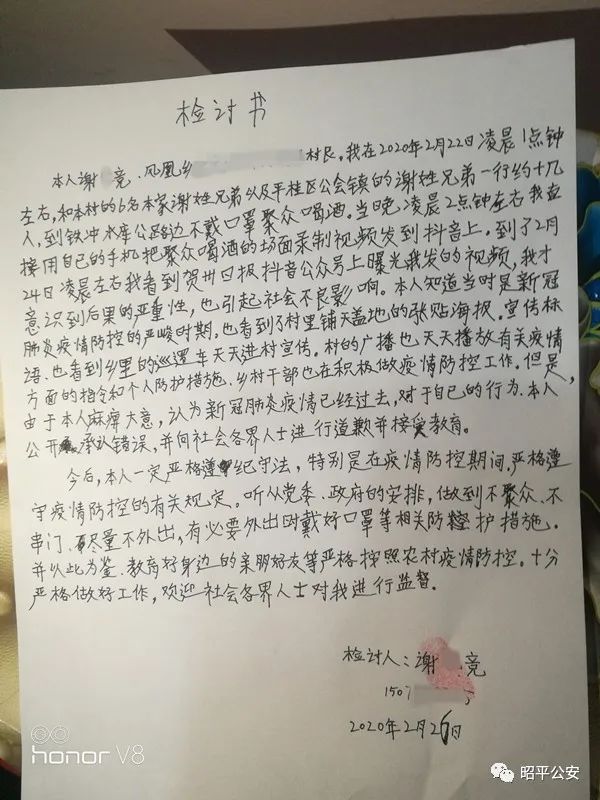 检讨书
本人谢 竞、凤凰乡 村民。我在2020年2月22日凌晨1点钟
左右,和本村的6名本家谢姓兄弟以及平桂区公会镇的谢姓兄弟一行约十几
人,到铁冲水库公路边不戴口罩聚众喝酒。当晚凌晨2点钟左右我直
接用自己的手机把聚众喝酒的场面录制视频发到抖音上。到了2月
24日凌晨左右我看到贺州日报抖音公众号上曝光我发的视频,我才
意识到后果的严重性,也引起社会不良影响。本人知道当时是新冠
肺炎疫情防控的严峻时期,也看到了村里铺天盖地的张贴海报。宣传标
语、也看到乡里的巡逻车天天进村宣传。村的广播也天天播放有关疫情
方面的指令和个人防护措施、乡村干部也在积极做疫情防控工作。但是
由于本人麻痹大意,认为新冠肺炎疫情已经过去,对于自己的行为、本人,
公开承认错误,并向社会各界人士进行道歉并接受教育。
今后,本人一定严格遵纪守法,特别是在疫情防控期间,严格遵
守疫情防控的有关规定。听从党委、政府的安排,做到不聚众、不
串门、尽量不外出,有必要外出时戴好口罩等相关防护措施。
并以此为鉴、教育好身边的亲朋好友等严格按照农村疫情防控。十分
严格做好工作,欢迎社会各界人士对我进行监督.
检讨人:谢 竞
150
2020年2月26日
honor V8
昭平公安